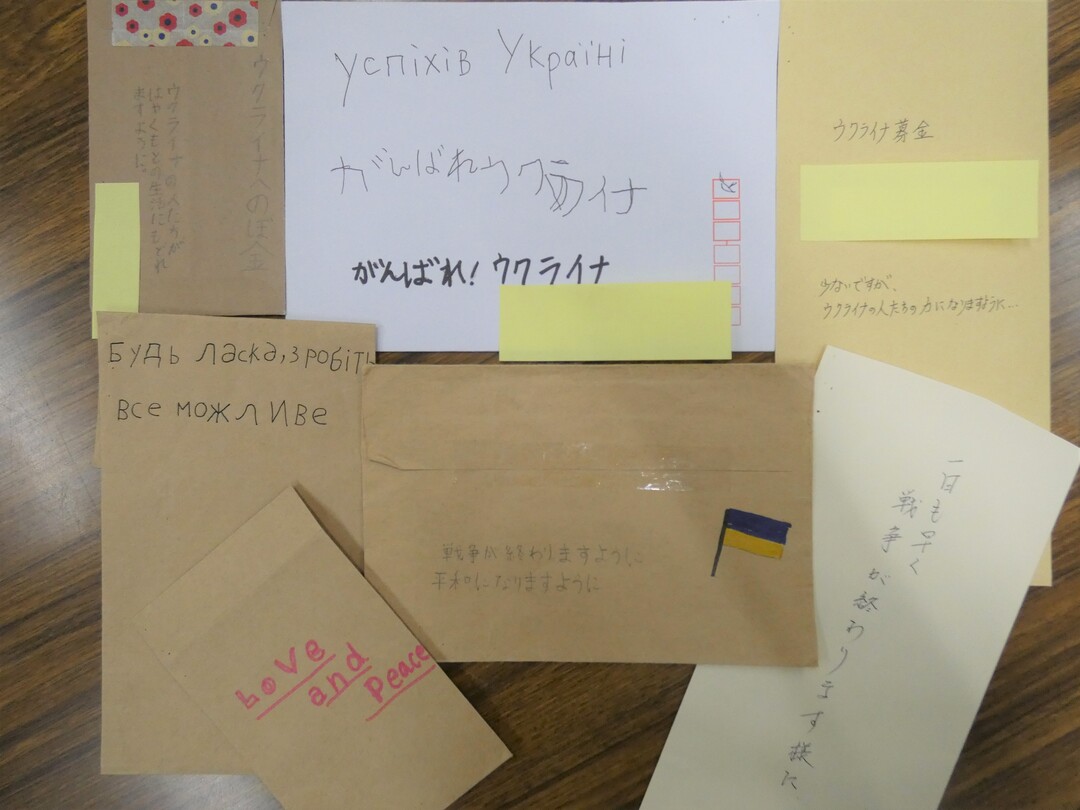 ウクライナへのぼ金
ウクライナの人たちが
はやくもとの生活にもどれ
ますように。
Успіхів Україні
がんばれウクライナ
がんばれ!ウクライナ
ウクライナ募金
少ないですが、
ウクライナの人たちの力になりますように…
Будь ласка, зробіть
все можливе
戦争が終わりますように
平和になりますように
Love
and
Peace
一日も早く
戦争が終わります様に